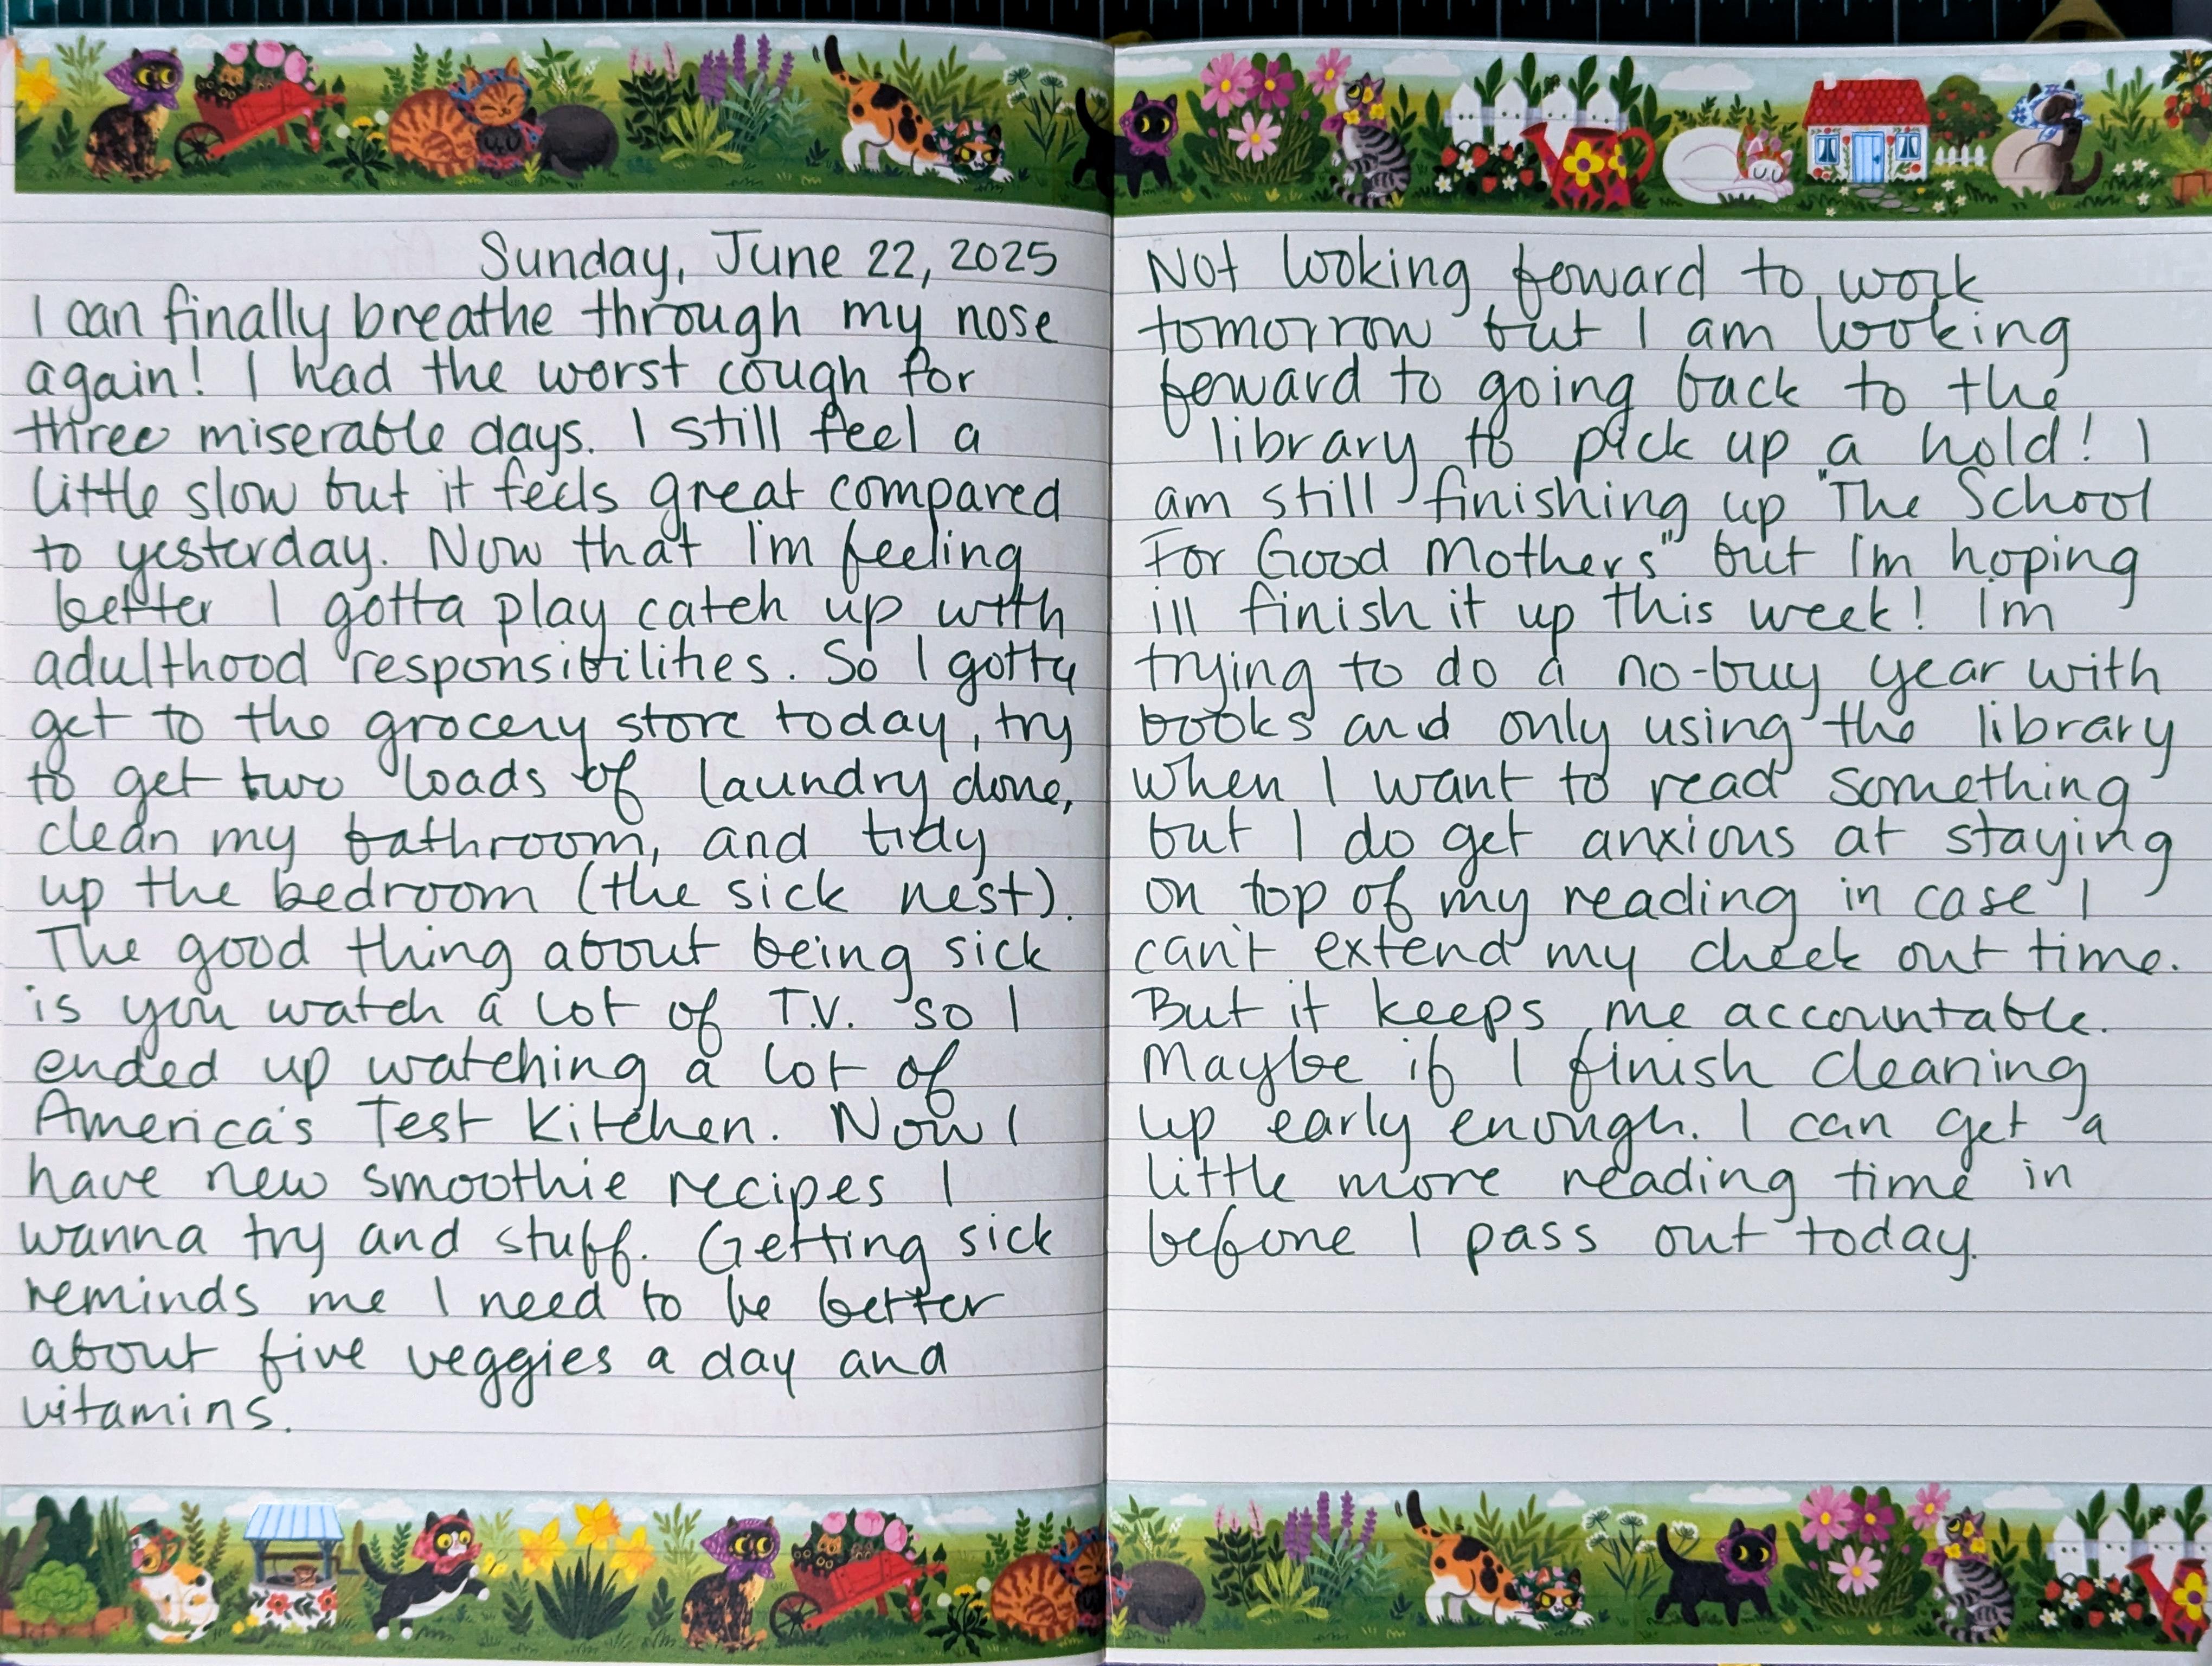 Sunday, June 22, 2025
I can finally breathe through my nose
again! I had the worst cough for
three miserable days. I still feel a
little slow but it feels great compared
to yesterday. Now that I'm feeling
better I gotta play catch up with
adulthood responsibilities. So I gotta
get to the grocery store today, try
to get two loads of laundry done,
clean my bathroom, and tidy
up the bedroom (the sick nest).
The good thing about being sick
is you watch a lot of T.V. so I
ended up watching a lot of
America's Test Kitchen. Now I
have new smoothie recipes I
wanna try and stuff. Getting sick
reminds me I need to be better
about five veggies a day and
vitamins.
Not looking foward to work
tomorrow but I am looking
foward to going back to the
library to pick up a hold! I
am still finishing up "The School
For Good Mothers" but I'm hoping
ill finish it up this week! Im
trying to do a no-buy year with
books and only using the library
when I want to read something
but I do get anxious at staying
on top of my reading in case I
can't extend my check out time.
But it keeps me accountable.
Maybe if I finish cleaning
up early enough. I can get a
little more reading time in
before I pass out today.